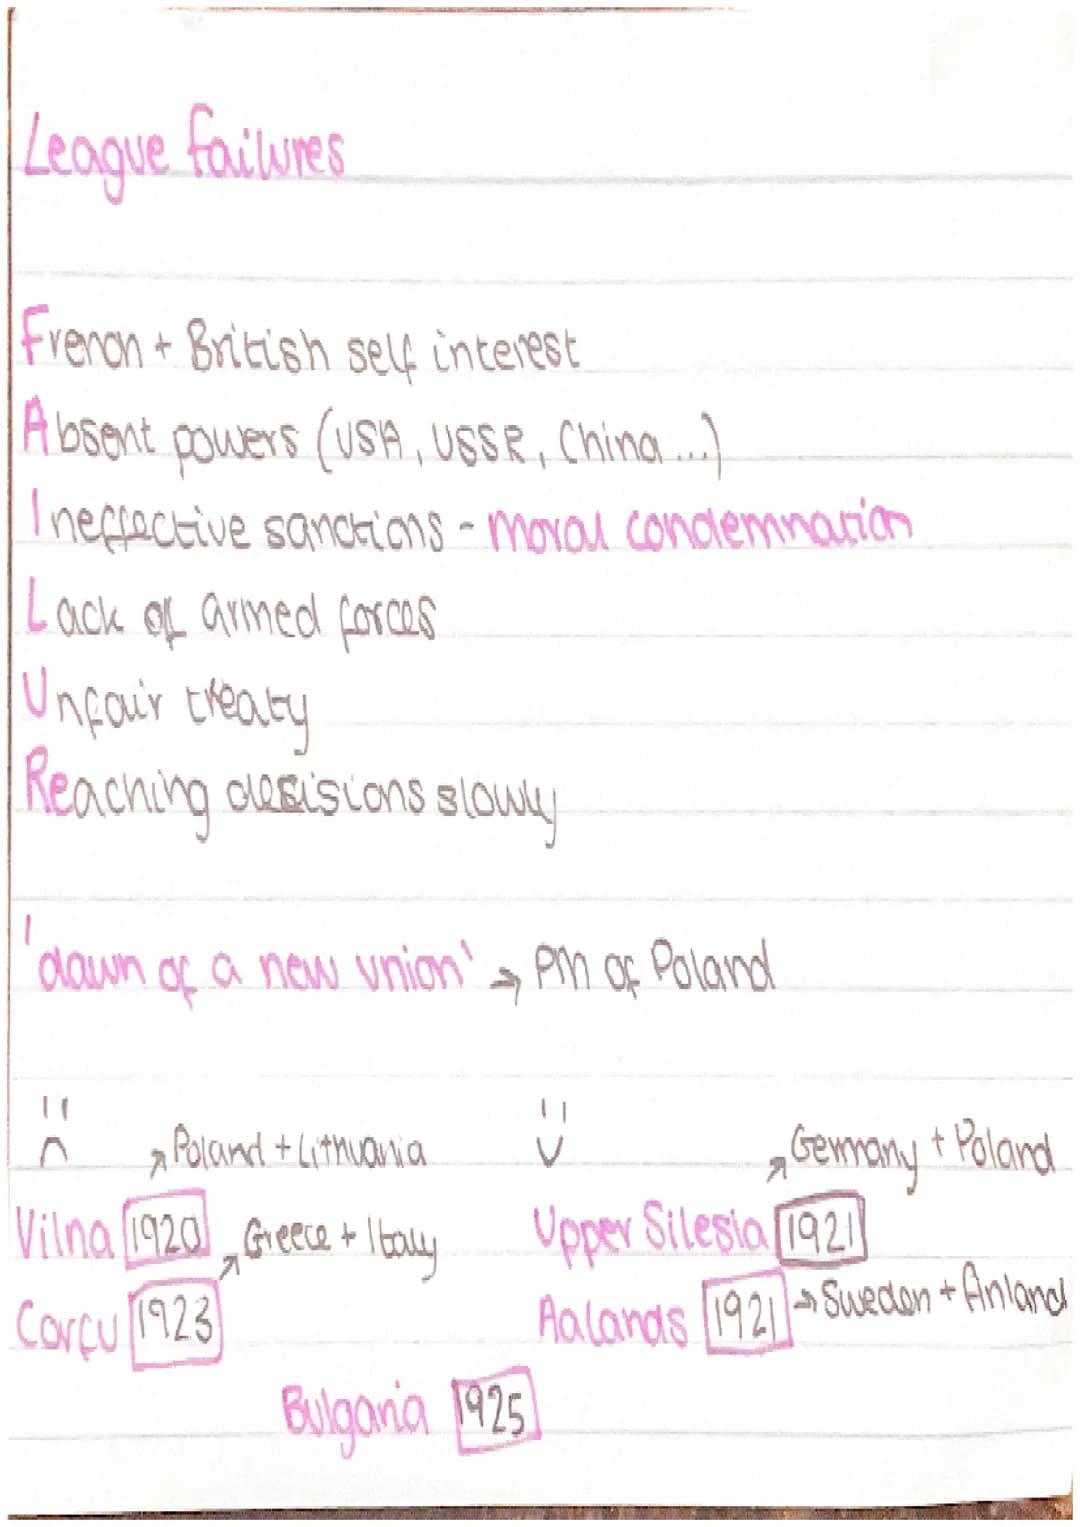 League failures
French + British self interest
Absent powers (USA, USSR, China ...)
Ineffective sanctions - moral condemnation
Lack of armed forces
Unfair treaty
Reaching desisions slowly
'dawn of a new union' → PM of Poland
:( :)
↗ Poland + Lithuania ↗ Germany + Poland
Vilna 1920 ↗ Greece + Italy Upper Silesia 1921
Corfu 1923 Aalands 1921 → Sweden + Finland
Bulgaria 1925